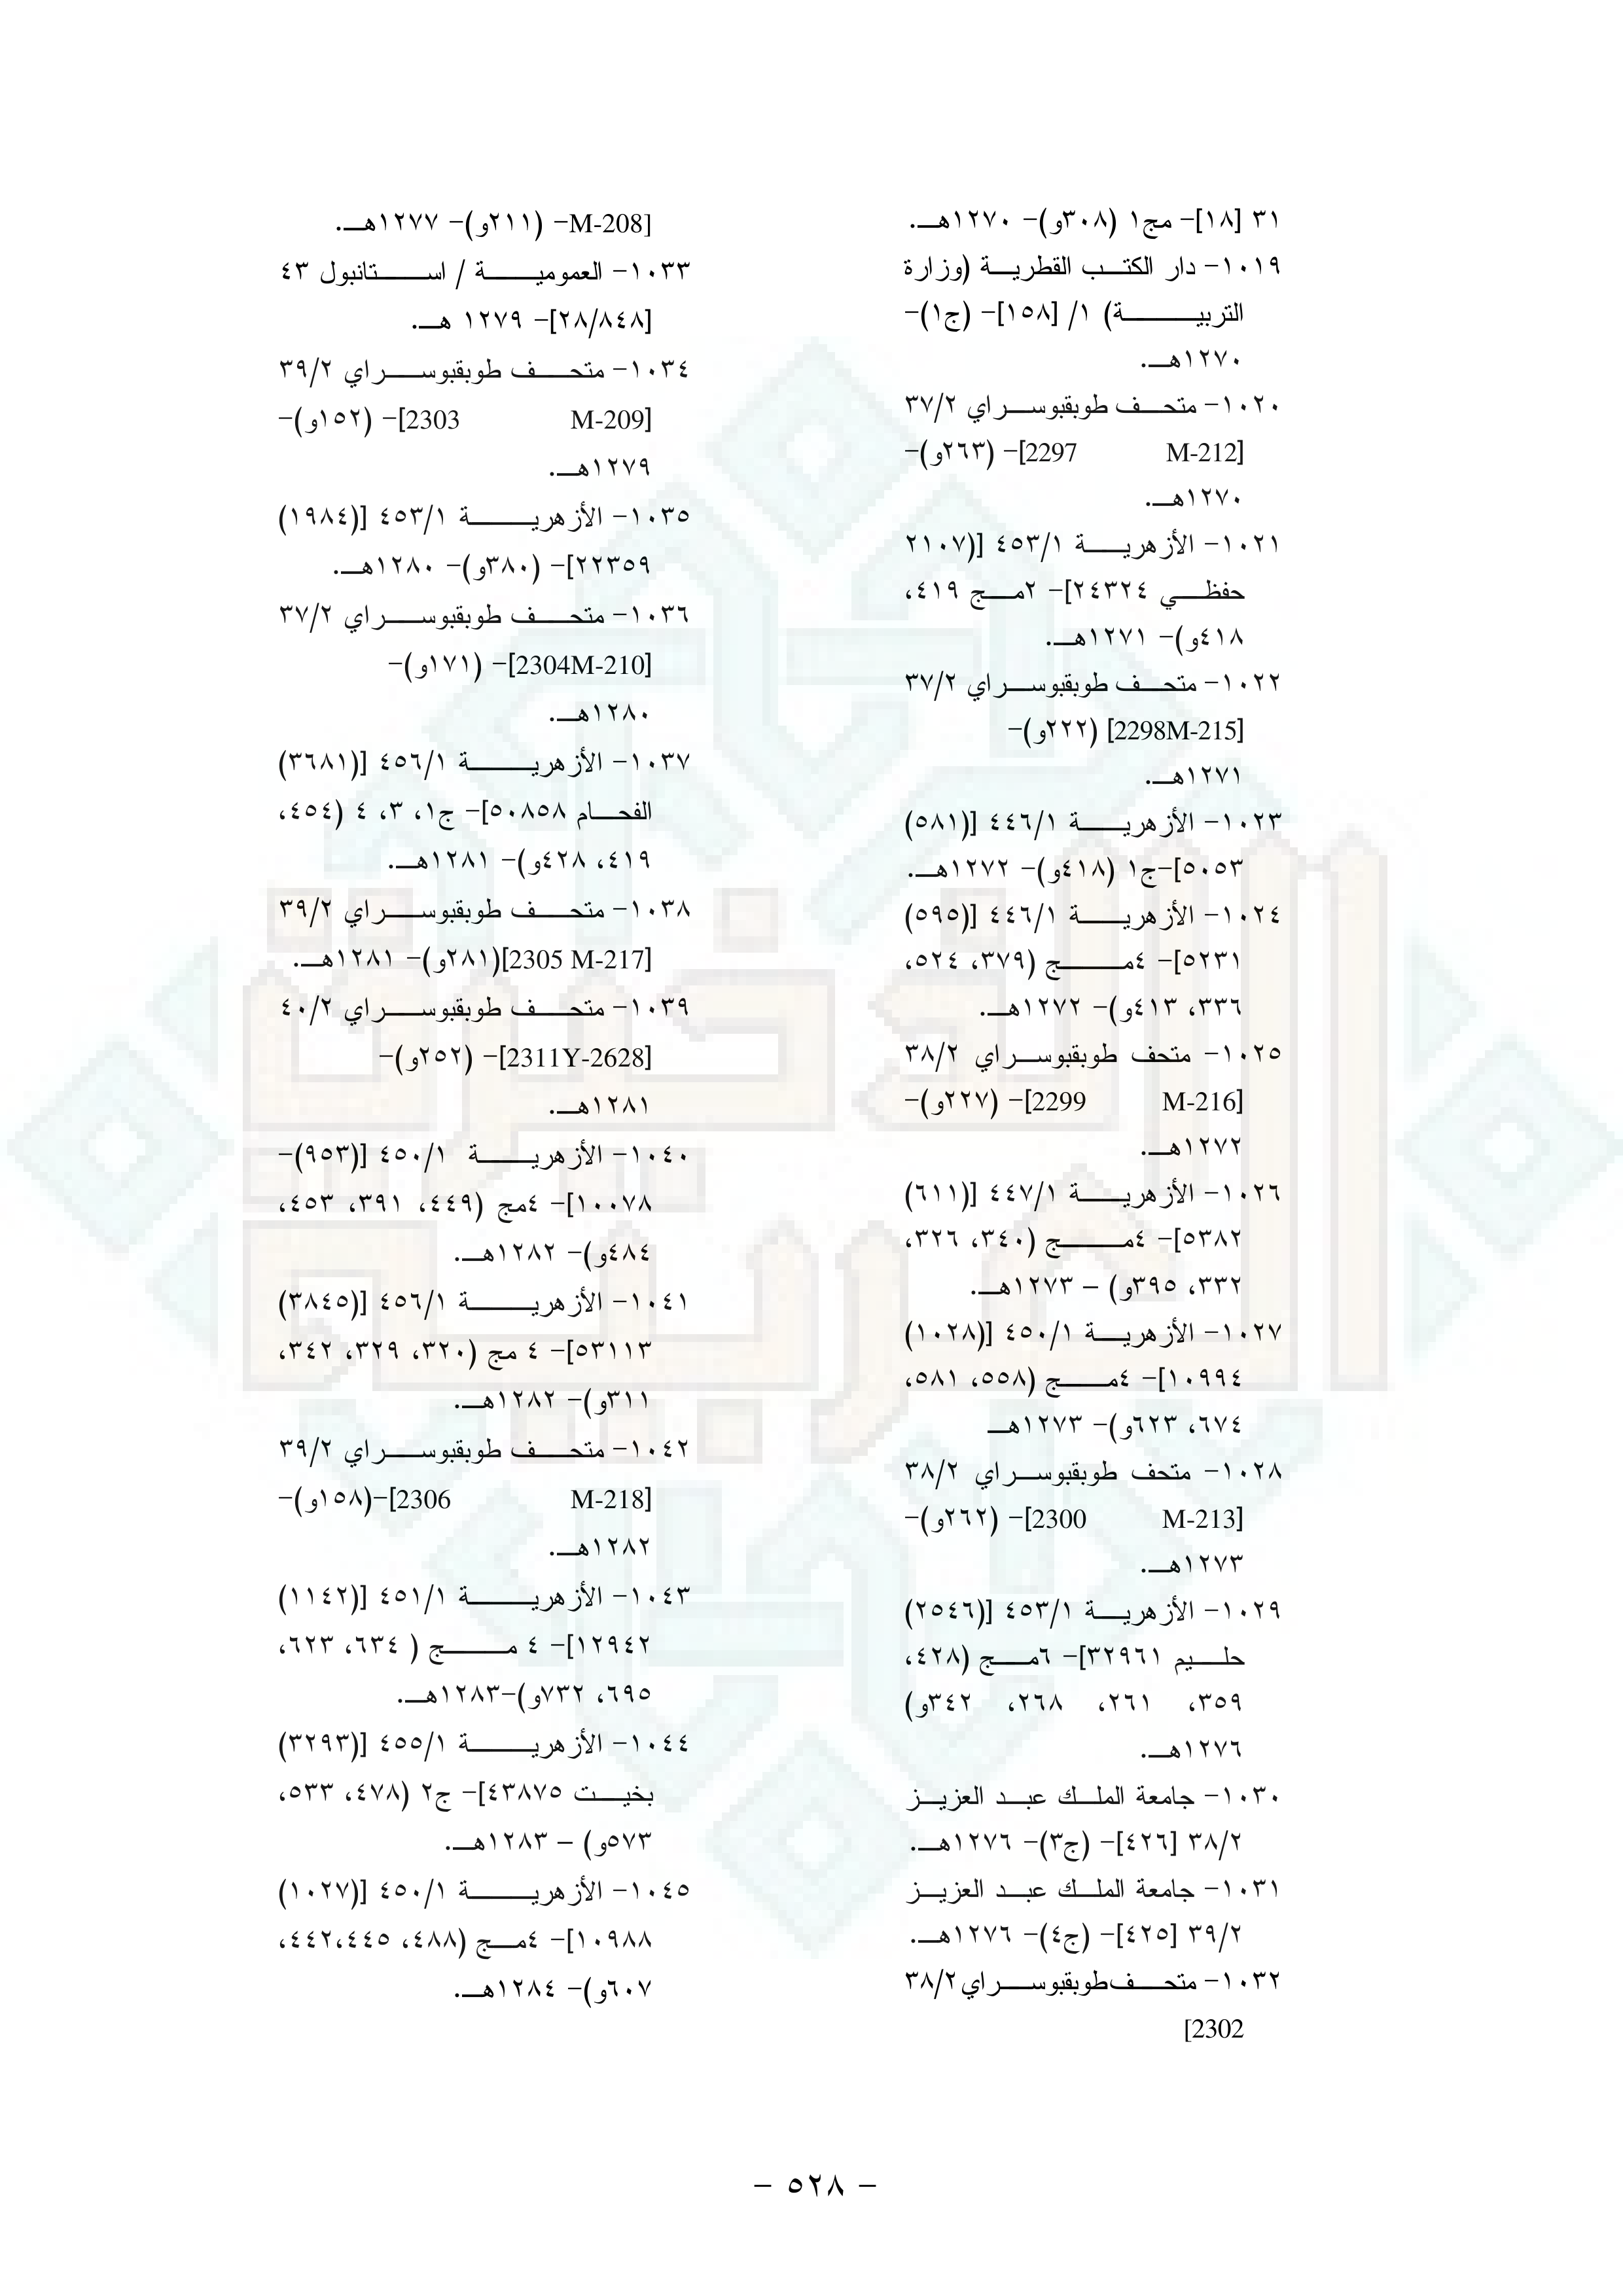 ٣١ [١٨]- مج١ (٣٠٨و)- ١٢٧٠هـ.
١٠١٩- دار الكتب القطرية (وزارة
التربية) ١/ [١٥٨]- (ج١)-
١٢٧٠هـ.
١٠٢٠- متحف طوبقبوسراي ٣٧/٢
[2297 M-212]- (٢٦٣و)-
١٢٧٠هـ.
١٠٢١- الأزهرية ٤٥٣/١ [(٢١٠٧
حفظي ٢٤٣٢٤]- ٢مج ٤١٩،
٤١٨و)- ١٢٧١هـ.
١٠٢٢- متحف طوبقبوسراي ٣٧/٢
[2298M-215] (٢٢٢و)-
١٢٧١هـ.
١٠٢٣- الأزهرية ٤٤٦/١ [(٥٨١)
٥٠٥٣]-ج١ (٤١٨و)- ١٢٧٢هـ.
١٠٢٤- الأزهرية ٤٤٦/١ [(٥٩٥)
٥٢٣١]- ٤مج (٣٧٩، ٥٢٤،
٣٣٦، ٤١٣و)- ١٢٧٢هـ.
١٠٢٥- متحف طوبقبوسراي ٣٨/٢
[2299 M-216]- (٢٢٧و)-
١٢٧٢هـ.
١٠٢٦- الأزهرية ٤٤٧/١ [(٦١١)
٥٣٨٢]- ٤مج (٣٤٠، ٣٢٦،
٣٣٢، ٣٩٥و) – ١٢٧٣هـ.
١٠٢٧- الأزهرية ٤٥٠/١ [(١٠٢٨)
١٠٩٩٤]- ٤مج (٥٥٨، ٥٨١،
٦٧٤، ٦٢٣و)- ١٢٧٣هـ
١٠٢٨- متحف طوبقبوسراي ٣٨/٢
[2300 M-213]- (٢٦٢و)-
١٢٧٣هـ.
١٠٢٩- الأزهرية ٤٥٣/١ [(٢٥٤٦)
حليم ٣٢٩٦١]- ٦مج (٤٢٨،
٣٥٩، ٢٦١، ٢٦٨، ٣٤٢و)
١٢٧٦هـ.
١٠٣٠- جامعة الملك عبد العزيز
٣٨/٢ [٤٢٦]- (ج٣)- ١٢٧٦هـ.
١٠٣١- جامعة الملك عبد العزيز
٣٩/٢ [٤٢٥]- (ج٤)- ١٢٧٦هـ.
١٠٣٢- متحف طوبقبوسراي ٣٨/٢
[2302
M-208]- (٢١١و)- ١٢٧٧هـ.
١٠٣٣- العمومية / استانبول ٤٣
[٢٨/٨٤٨]- ١٢٧٩ هـ.
١٠٣٤- متحف طوبقبوسراي ٣٩/٢
[2303 M-209]- (١٥٢و)-
١٢٧٩هـ.
١٠٣٥- الأزهرية ٤٥٣/١ [(١٩٨٤)
٢٢٣٥٩]- (٣٨٠و)- ١٢٨٠هـ.
١٠٣٦- متحف طوبقبوسراي ٣٧/٢
[2304M-210]- (١٧١و)-
١٢٨٠هـ.
١٠٣٧- الأزهرية ٤٥٦/١ [(٣٦٨١)
الفحام ٥٠٨٥٨]- ج١، ٣، ٤ (٤٥٤،
٤١٩، ٤٢٨و)- ١٢٨١هـ.
١٠٣٨- متحف طوبقبوسراي ٣٩/٢
[2305 M-217](٢٨١و)- ١٢٨١هـ.
١٠٣٩- متحف طوبقبوسراي ٤٠/٢
[2311Y-2628]- (٢٥٢و)-
١٢٨١هـ.
١٠٤٠- الأزهرية ٤٥٠/١ [(٩٥٣)-
١٠٠٧٨]- ٤مج (٤٤٩، ٣٩١، ٤٥٣،
٤٨٤و)- ١٢٨٢هـ.
١٠٤١- الأزهرية ٤٥٦/١ [(٣٨٤٥)
٥٣١١٣]- ٤ مج (٣٢٠، ٣٢٩، ٣٤٢،
٣١١و)- ١٢٨٢هـ.
١٠٤٢- متحف طوبقبوسراي ٣٩/٢
[2306 M-218]-(١٥٨و)-
١٢٨٢هـ.
١٠٤٣- الأزهرية ٤٥١/١ [(١١٤٢)
١٢٩٤٢]- ٤ مج ( ٦٣٤، ٦٢٣،
٦٩٥، ٧٣٢و)-١٢٨٣هـ.
١٠٤٤- الأزهرية ٤٥٥/١ [(٣٢٩٣)
بخيت ٤٣٨٧٥]- ج٢ (٤٧٨، ٥٣٣،
٥٧٣و) – ١٢٨٣هـ.
١٠٤٥- الأزهرية ٤٥٠/١ [(١٠٢٧)
١٠٩٨٨]- ٤مج (٤٨٨، ٤٤٢،٤٤٥،
٦٠٧و)- ١٢٨٤هـ.
- ٥٢٨ -